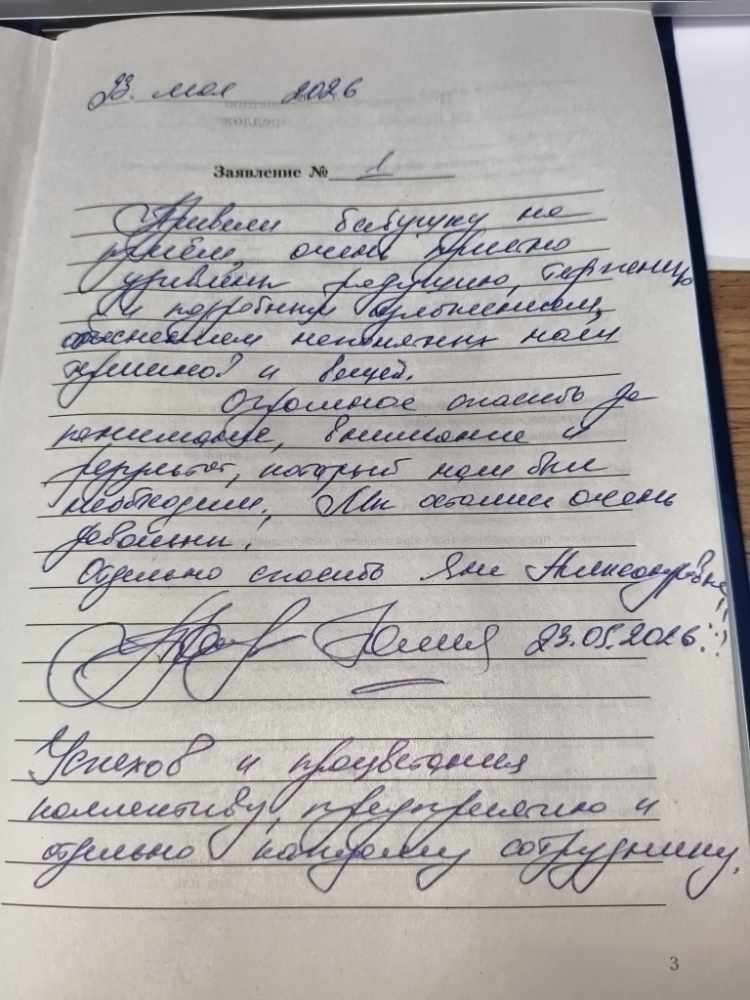 23. мая 2026
Заявление № 1
Привели бабушку на
приём, очень приятно
удивлены радушию, терпению
и подробным
объяснением непонятных нам
терминов и вещей.
Огромное спасибо за
понимание, внимание и
результат, который нам был
необходим. Мы остались очень
довольны!
Отдельно спасибо Яне Александровне
!!!
Юлия 23.05.2026.
Успехов и процветания
коллективу, предприятию и
отдельно каждому сотруднику.
3